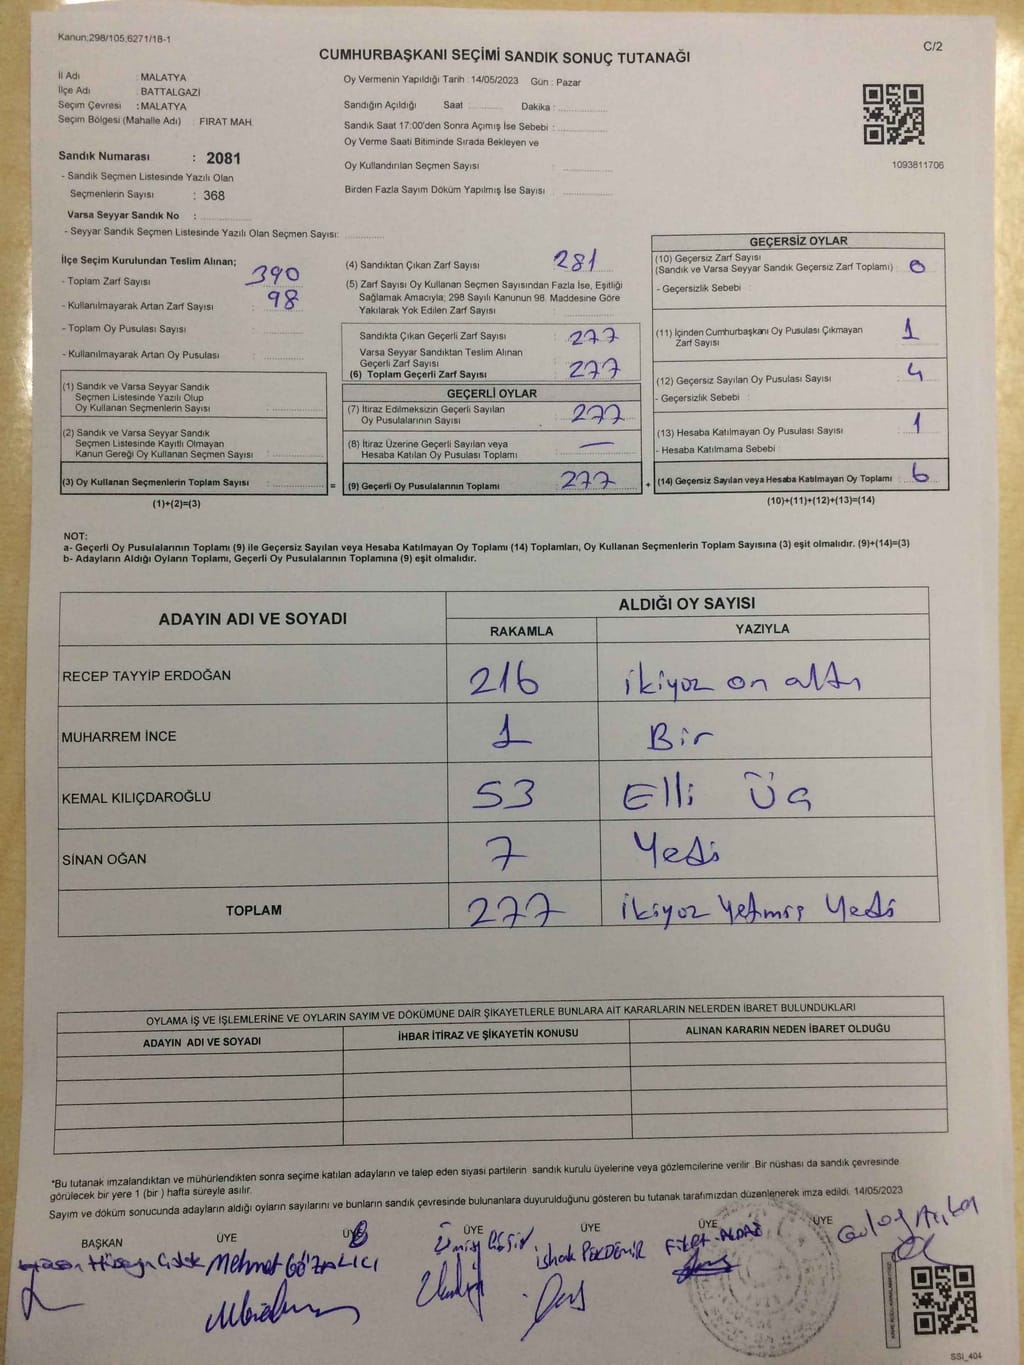 Kanun:298/105,6271/18-1
C/2
CUMHURBAŞKANI SEÇİMİ SANDIK SONUÇ TUTANAĞI
İl Adı : MALATYA
İlçe Adı : BATTALGAZİ
Seçim Çevresi : MALATYA
Seçim Bölgesi (Mahalle Adı) : FIRAT MAH.
Sandık Numarası : 2081
- Sandık Seçmen Listesinde Yazılı Olan
Seçmenlerin Sayısı : 368
Varsa Seyyar Sandık No :
- Seyyar Sandık Seçmen Listesinde Yazılı Olan Seçmen Sayısı:
Oy Vermenin Yapıldığı Tarih : 14/05/2023 Gün : Pazar
Sandığın Açıldığı Saat Dakika :
Sandık Saat 17:00'den Sonra Açımış İse Sebebi :
Oy Verme Saati Bitiminde Sırada Bekleyen ve
Oy Kullandırılan Seçmen Sayısı :
Birden Fazla Sayım Döküm Yapılmış İse Sayısı :
1093811706
İlçe Seçim Kurulundan Teslim Alınan;
- Toplam Zarf Sayısı : 390
- Kullanılmayarak Artan Zarf Sayısı : 98
- Toplam Oy Pusulası Sayısı :
- Kullanılmayarak Artan Oy Pusulası :
(1) Sandık ve Varsa Seyyar Sandık
Seçmen Listesinde Yazılı Olup
Oy Kullanan Seçmenlerin Sayısı :
(2) Sandık ve Varsa Seyyar Sandık
Seçmen Listesinde Kayıtlı Olmayan
Kanun Gereği Oy Kullanan Seçmen Sayısı :
(3) Oy Kullanan Seçmenlerin Toplam Sayısı :
(1)+(2)=(3)
(4) Sandıktan Çıkan Zarf Sayısı : 281
(5) Zarf Sayısı Oy Kullanan Seçmen Sayısından Fazla İse, Eşitliği
Sağlamak Amacıyla; 298 Sayılı Kanunun 98. Maddesine Göre
Yakılarak Yok Edilen Zarf Sayısı :
Sandıkta Çıkan Geçerli Zarf Sayısı : 277
Varsa Seyyar Sandıktan Teslim Alınan
Geçerli Zarf Sayısı
(6) Toplam Geçerli Zarf Sayısı : 277
GEÇERLİ OYLAR
(7) İtiraz Edilmeksizin Geçerli Sayılan
Oy Pusulalarının Sayısı : 277
(8) İtiraz Üzerine Geçerli Sayılan veya
Hesaba Katılan Oy Pusulası Toplamı : —
= (9) Geçerli Oy Pusulalarının Toplamı : 277
GEÇERSİZ OYLAR
(10) Geçersiz Zarf Sayısı
(Sandık ve Varsa Seyyar Sandık Geçersiz Zarf Toplamı) : 0
- Geçersizlik Sebebi :
(11) İçinden Cumhurbaşkanı Oy Pusulası Çıkmayan
Zarf Sayısı : 1
(12) Geçersiz Sayılan Oy Pusulası Sayısı : 4
- Geçersizlik Sebebi :
(13) Hesaba Katılmayan Oy Pusulası Sayısı : 1
- Hesaba Katılmama Sebebi :
+ (14) Geçersiz Sayılan veya Hesaba Katılmayan Oy Toplamı : 6
(10)+(11)+(12)+(13)=(14)
NOT:
a- Geçerli Oy Pusulalarının Toplamı (9) ile Geçersiz Sayılan veya Hesaba Katılmayan Oy Toplamı (14) Toplamları, Oy Kullanan Seçmenlerin Toplam Sayısına (3) eşit olmalıdır. (9)+(14)=(3)
b- Adayların Aldığı Oyların Toplamı, Geçerli Oy Pusulalarının Toplamına (9) eşit olmalıdır.
ADAYIN ADI VE SOYADI ALDIĞI OY SAYISI
RAKAMLA YAZIYLA
RECEP TAYYİP ERDOĞAN 216 ikiyüz on altı
MUHARREM İNCE 1 Bir
KEMAL KILIÇDAROĞLU 53 Elli Üç
SİNAN OĞAN 7 Yedi
TOPLAM 277 ikiyüz yetmiş yedi
OYLAMA İŞ VE İŞLEMLERİNE VE OYLARIN SAYIM VE DÖKÜMÜNE DAİR ŞİKAYETLERLE BUNLARA AİT KARARLARIN NELERDEN İBARET BULUNDUKLARI
ADAYIN ADI VE SOYADI İHBAR İTİRAZ VE ŞİKAYETİN KONUSU ALINAN KARARIN NEDEN İBARET OLDUĞU
*Bu tutanak imzalandıktan ve mühürlendikten sonra seçime katılan adayların ve talep eden siyasi partilerin sandık kurulu üyelerine veya gözlemcilerine verilir. Bir nüshası da sandık çevresinde
görülecek bir yere 1 (bir ) hafta süreyle asılır.
Sayım ve döküm sonucunda adayların aldığı oyların sayılarını ve bunların sandık çevresinde bulunanlara duyurulduğunu gösteren bu tutanak tarafımızdan düzenlenerek imza edildi. 14/05/2023
BAŞKAN ÜYE ÜYE ÜYE ÜYE ÜYE ÜYE
Mehmet GÖZALICI ishak PEKDEMİR
SSI_404